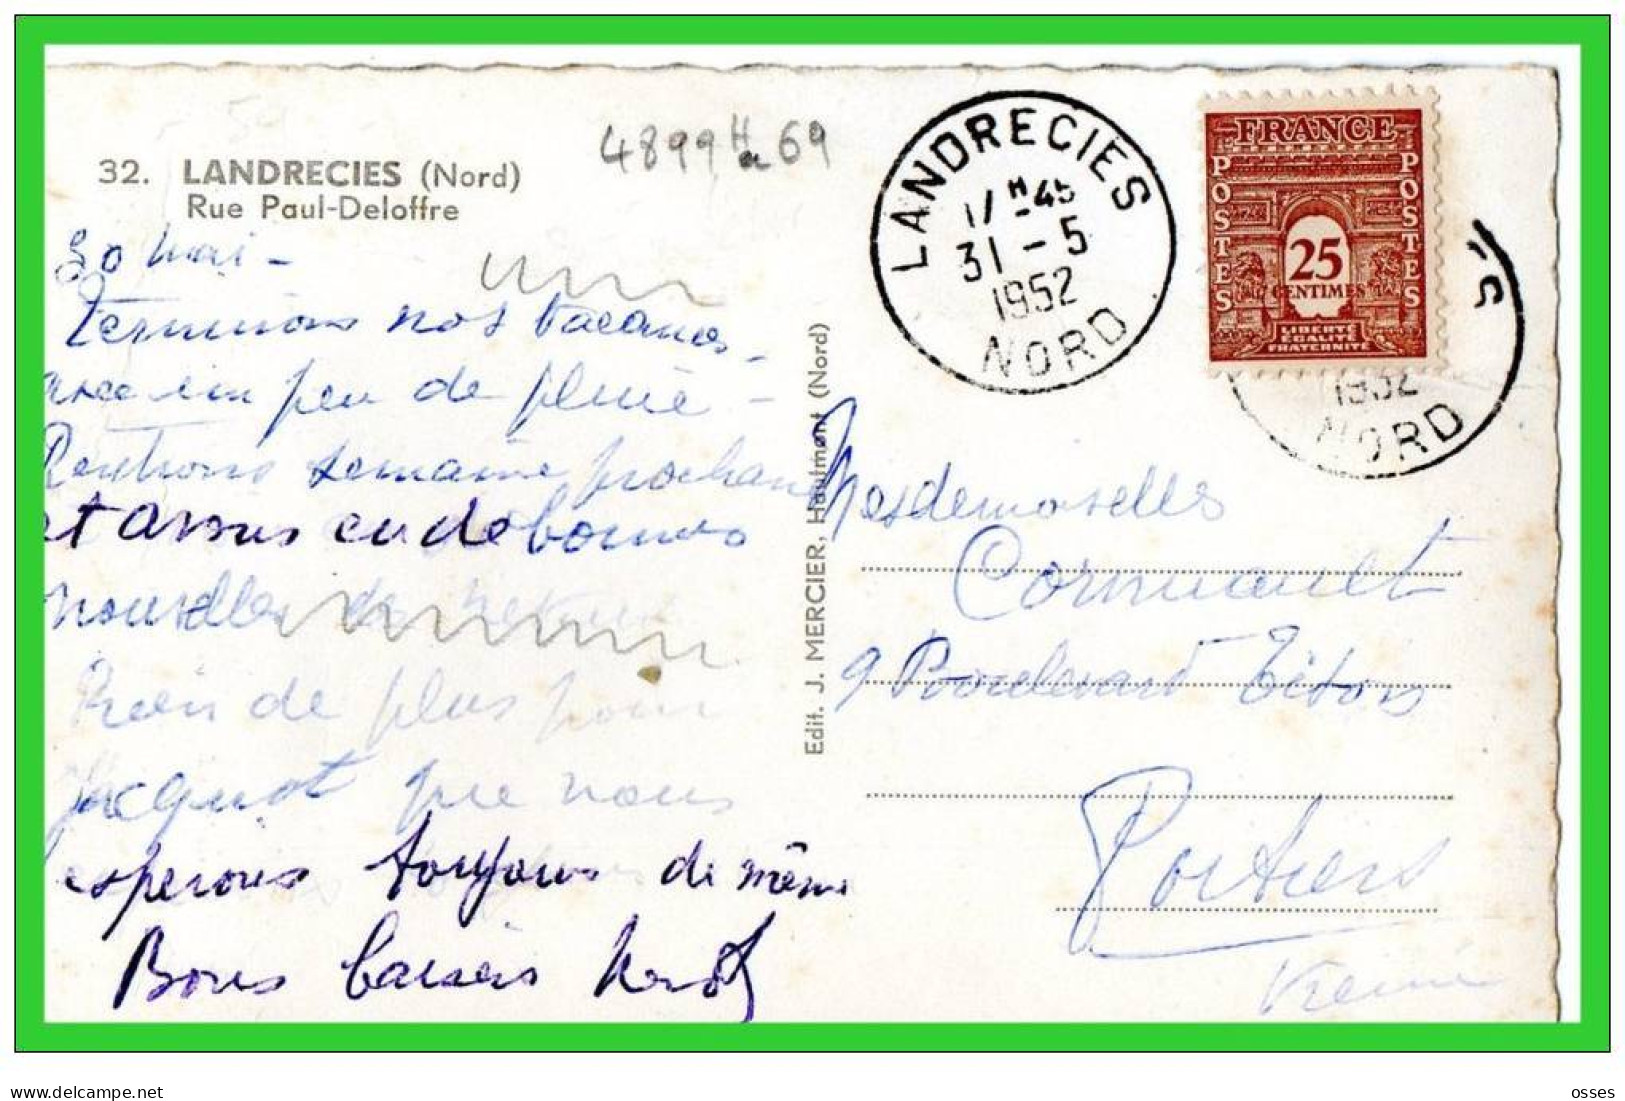 4899 H 69
32. LANDRECIES (Nord)
Rue Paul-Deloffre
30 Mai -
Terminons nos vacances -
avec un peu de pluie -
Rentrons semaine prochaine
et avons eu de bonnes
nouvelles de
Rien de plus pour
Jacquot que nous
esperons toujours de même
Bons baisers
Edit. J. MERCIER, Hautmont (Nord)
LANDRECIES
17 H 45
31 - 5
1952
NORD
FRANCE
POSTES
POSTES
25
CENTIMES
LIBERTÉ
ÉGALITÉ
FRATERNITÉ
S
1952
NORD
Mesdemoiselles
Cornuault
9 Boulevard
Poitiers
Vienne
delcampe.net
osses